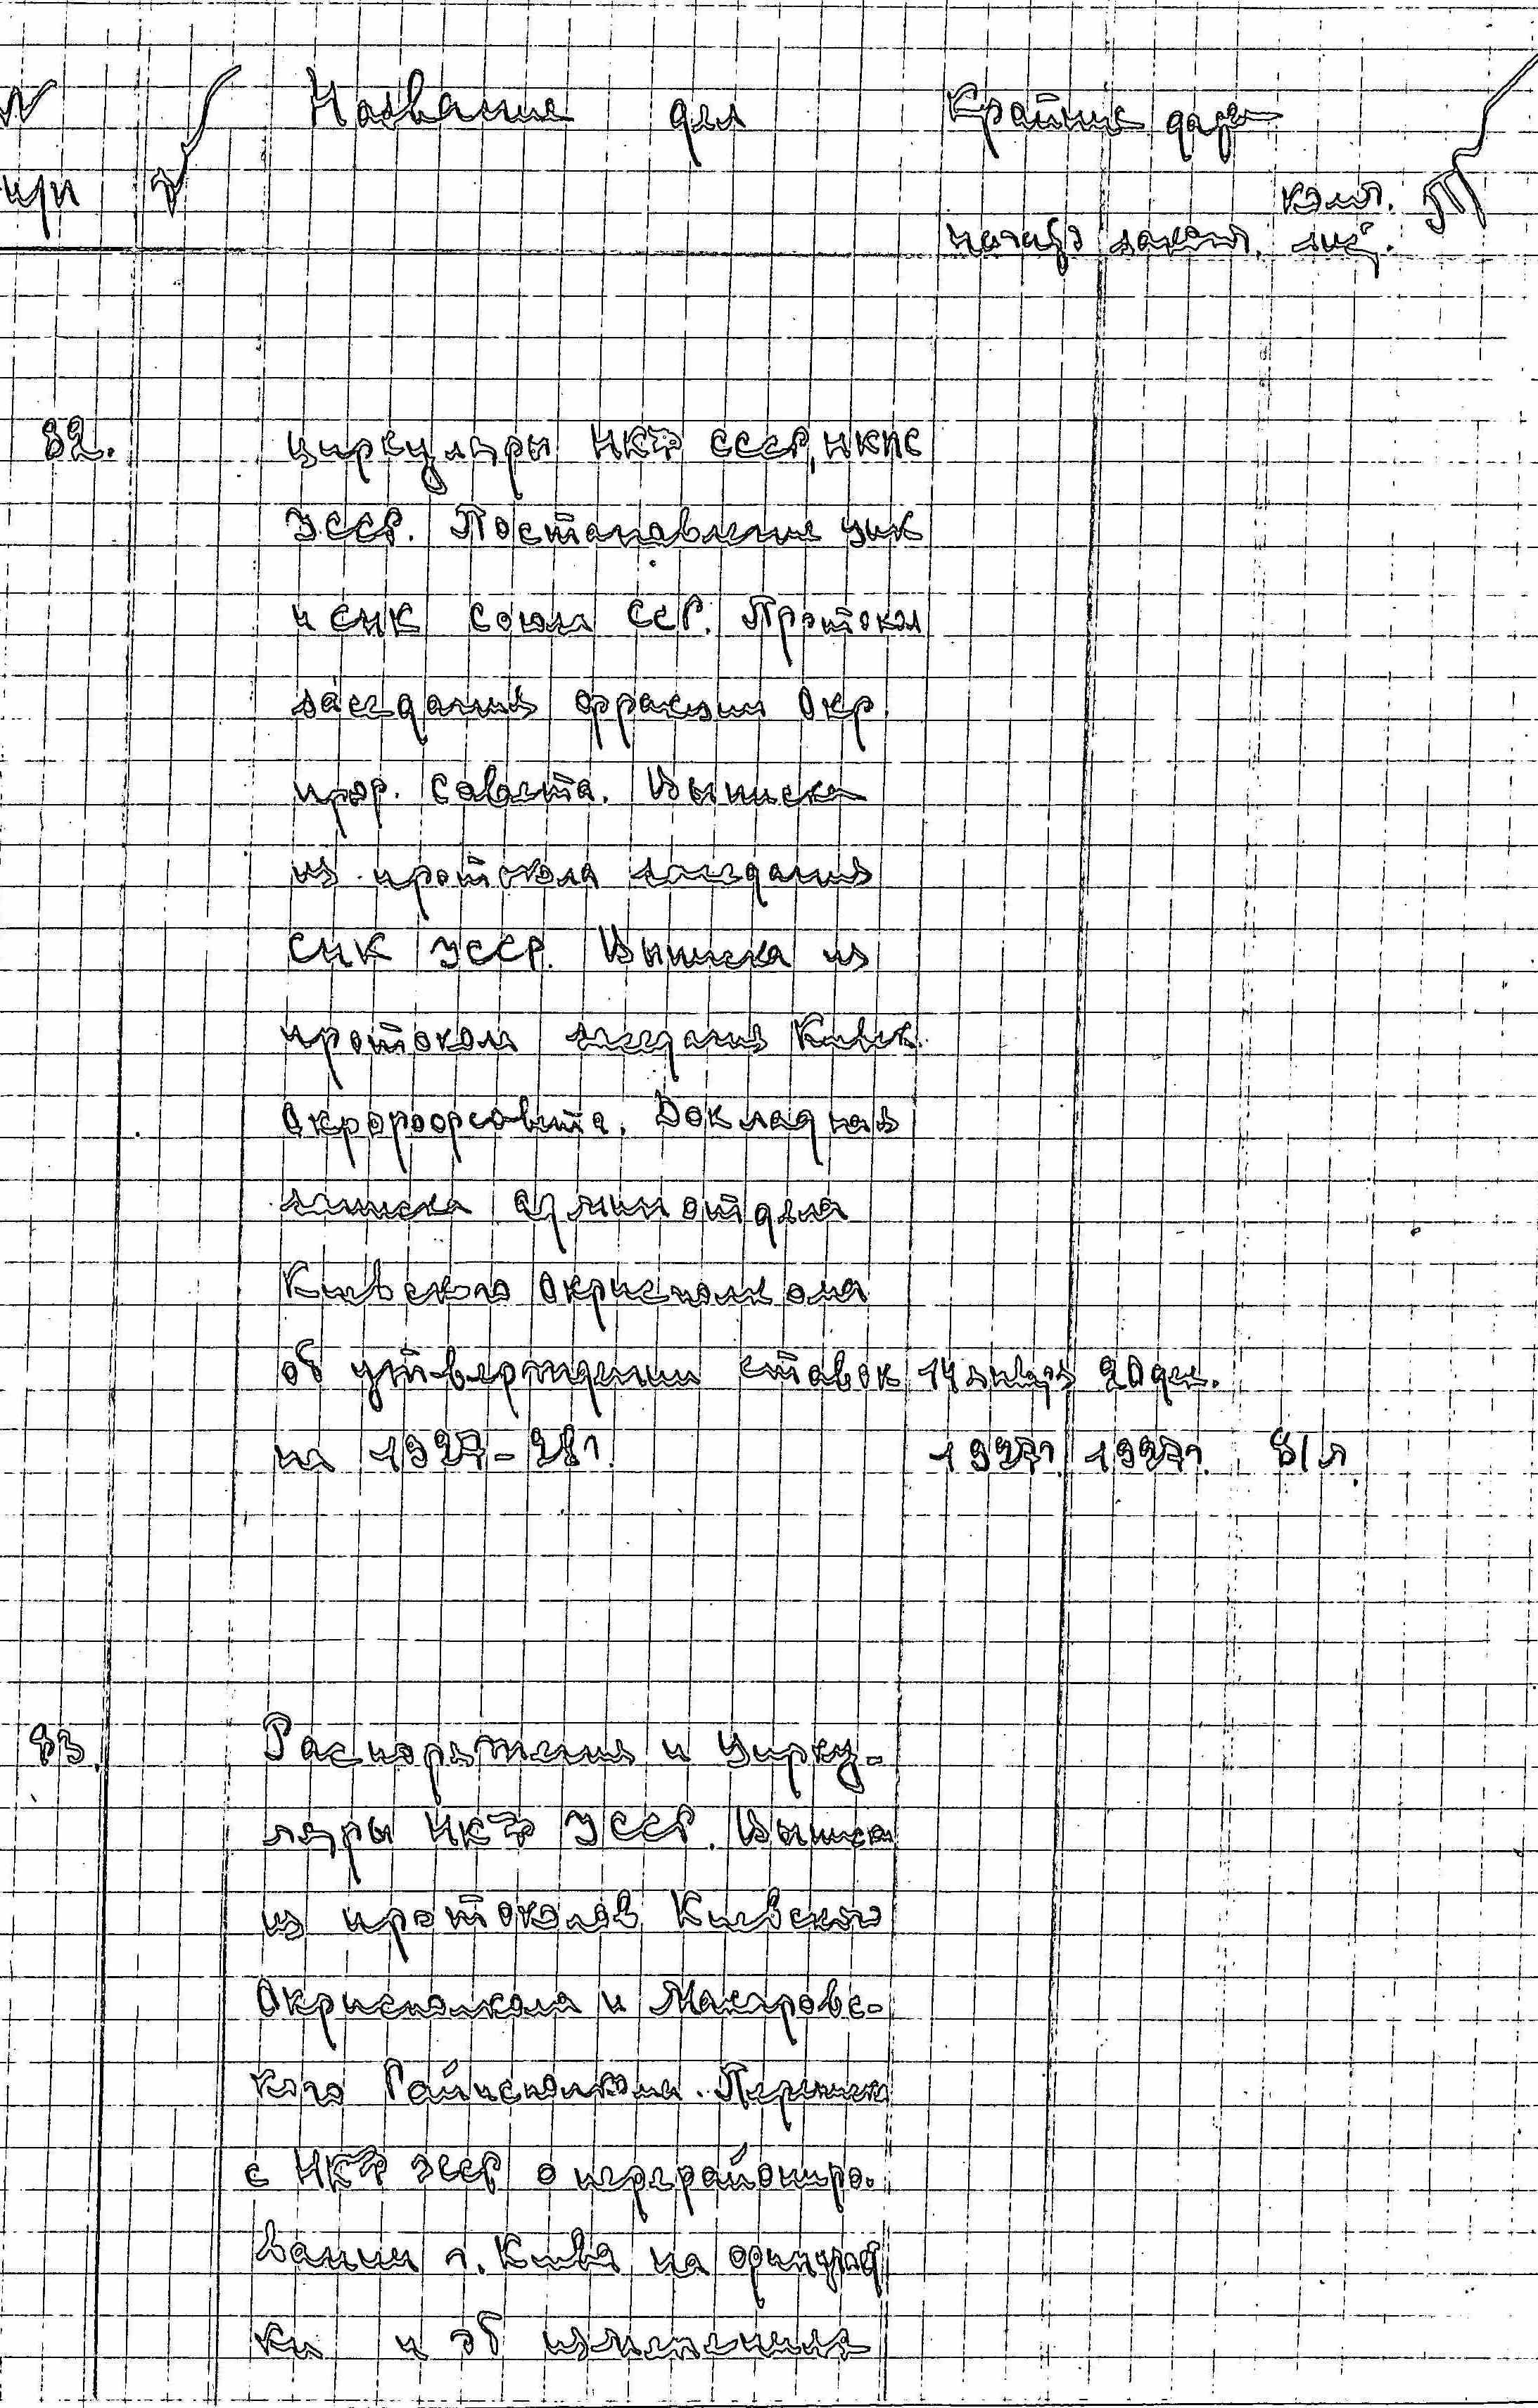 N Название дел Крайние даты
п/п
колич.
начало законч. лис.
82. Циркуляры НКФ СССР, НКПС
УССР. Постановление ЦИК
и СНК Союза ССР. Протокол
заседания фракции Окр
проф. совета. Выписка
из протокола заседания
СНК УССР. Выписка из
протокола заседания Киевск.
Окрпрофсовета. Докладная
записка админотдела
Киевского Окрисполкома
об утверждении ставок 14 января 20 дек.
на 1927-28 г. 1927г. 1927г. 81 л.
83. Распоряжения и цирку-
ляры НКФ УССР. Выписки
из протоколов Киевского
Окрисполкома и Макаровс-
кого Райисполкома. Переписка
с НКФ УССР о перерайониро-
вании г. Киева на
ки и об изменениях